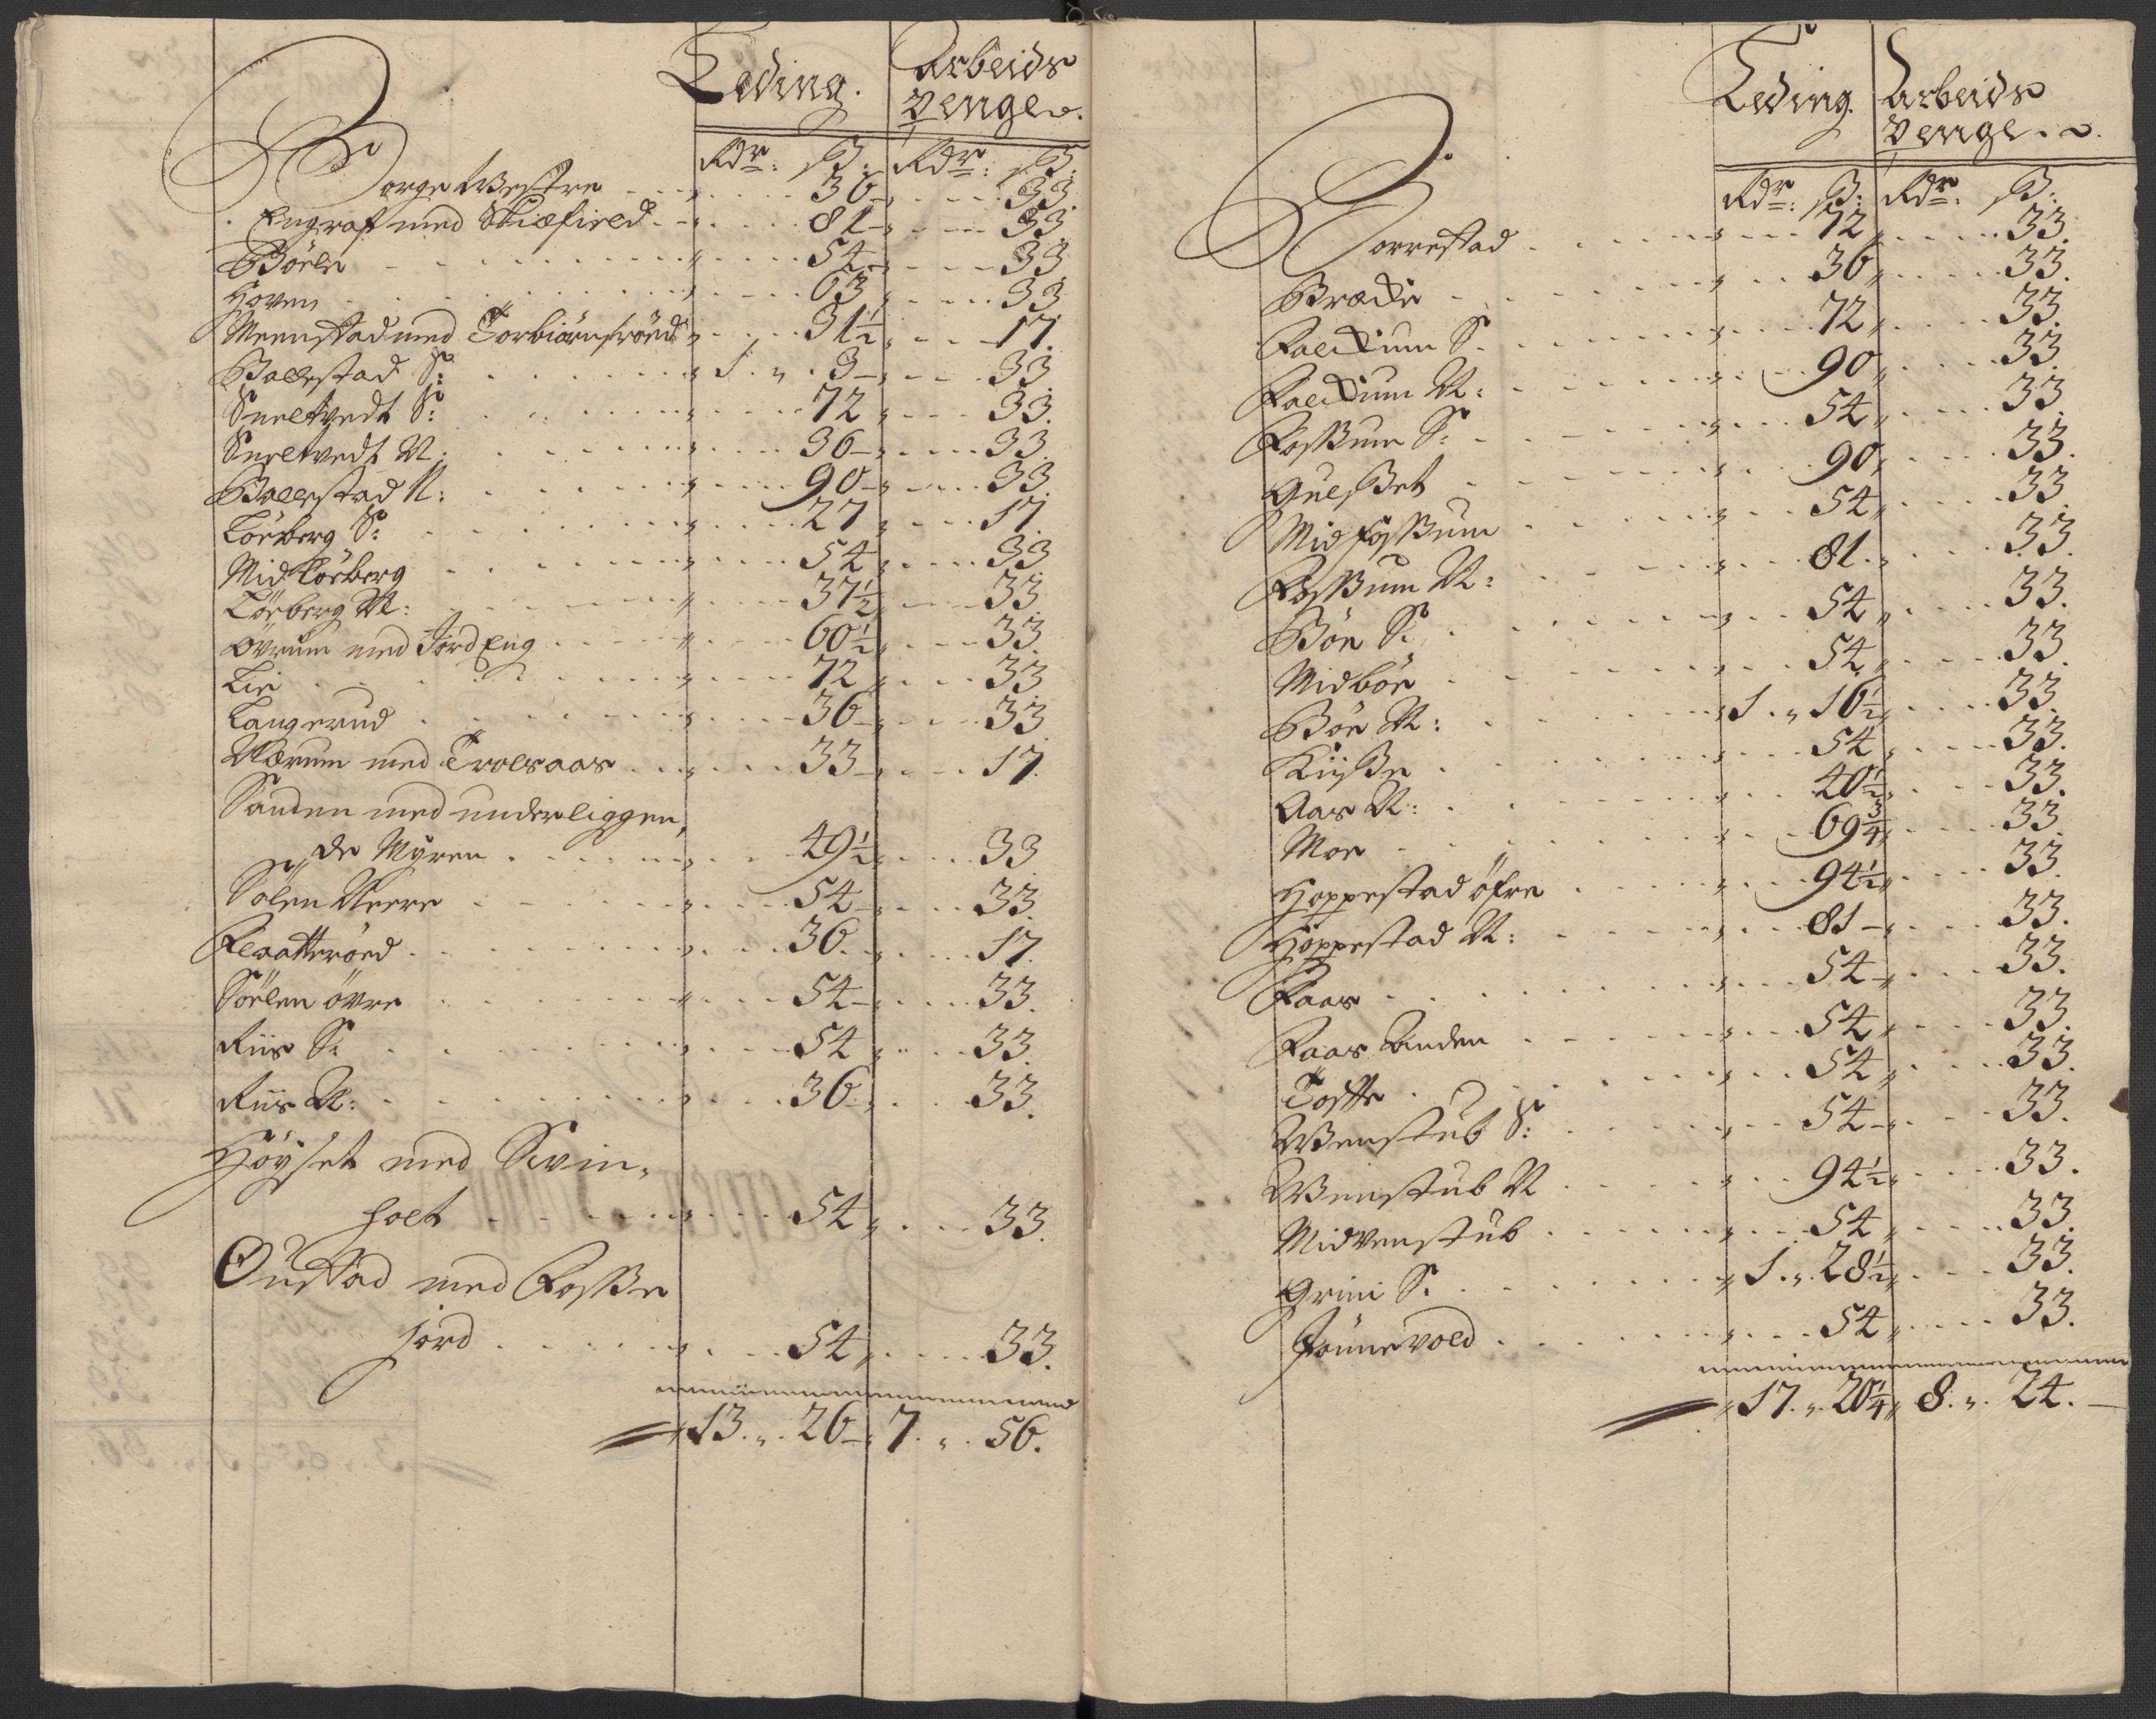 Leding. Arbeids
Penge.
Rdr: ß: Rdr: ß:
Borge Westre 36 33.
Engraf med Skiefield 81 33
Böele 54 33
Hoven 63 33
Meenstad med Torbiörnsröed 31½ 17.
Ballestad S: 1 3 33
Sneltvedt S: 72 33.
Sneltvedt N: 36 33.
Ballestad N: 90 33.
Löeberg S: 27 17.
Mid Löeberg 54 33
Löeberg N: 37½ 33
Øvrum med Jord Eng 60½ 33.
Lie 72 33
Langerud 36 33
Nærum med Trolsaas 33 17.
Sanden med underliggen,
de Myren 49½ 33
Sölen Neere 54 33.
Flaatteröed 36. 17.
Söelen övre 54 33.
Riis S: 54 33.
Riis N: 36 33.
Höyset med Svin,
holt 54 33.
Oustad med Fosse
jord 54 33.
13. 26 7. 56.
Leding. Arbeids
Penge.
Rdr: ß: Rdr: ß:
Borrestad 72 33.
Brække 36 33.
Falkum S. 72 33.
Falkum N: 90 33.
Fossum S: 54 33.
Gulset 90 33.
Mid Fossum 54 33.
Fossum N: 81. 33.
Böe S. 54 33.
Midböe 54 33.
Böe N: 1. 16½ 33.
Kiisse 54 33.
Aas N: 40½ 33.
Moe 69¾ 33.
Hoppestad öfre 94½ 33.
Hoppestad N: 81 33.
Faas 54 33.
Faas Anden 54 33.
Tofte 54 33.
Wenstub S: 54 33.
Wenstub N 94½ 33.
Midvenstub 54 33.
Grini S. 1. 28½ 33.
Jönnevold 54 33.
17. 20¼ 8. 24.